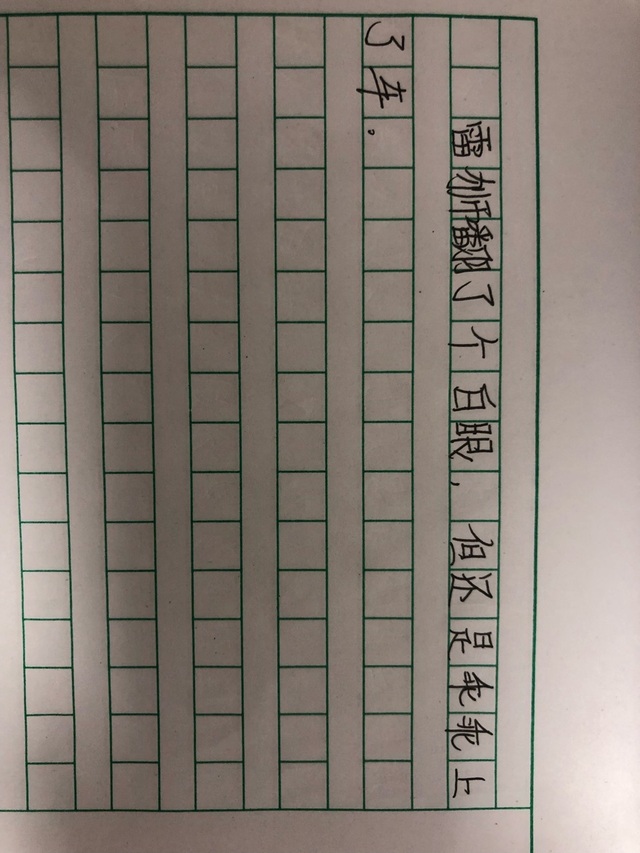 雷狮翻了个白眼，但还是乖乖上
了车。